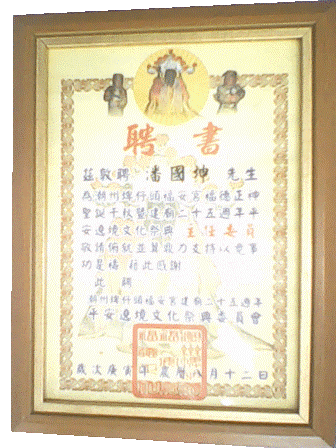 聘書
茲敦聘 潘國坤 先生
為潮州埤仔頭福安宮福德正神
聖誕千秋暨建廟二十五週年平
安遶境文化祭典 主任委員
敬請俯就並算致力支持以竟事
功是禱 藉此感謝
此 聘
潮州埤仔頭福安宮建廟二十五週年
平安遶境文化祭典委員會
歲次庚寅年農曆八月十二日